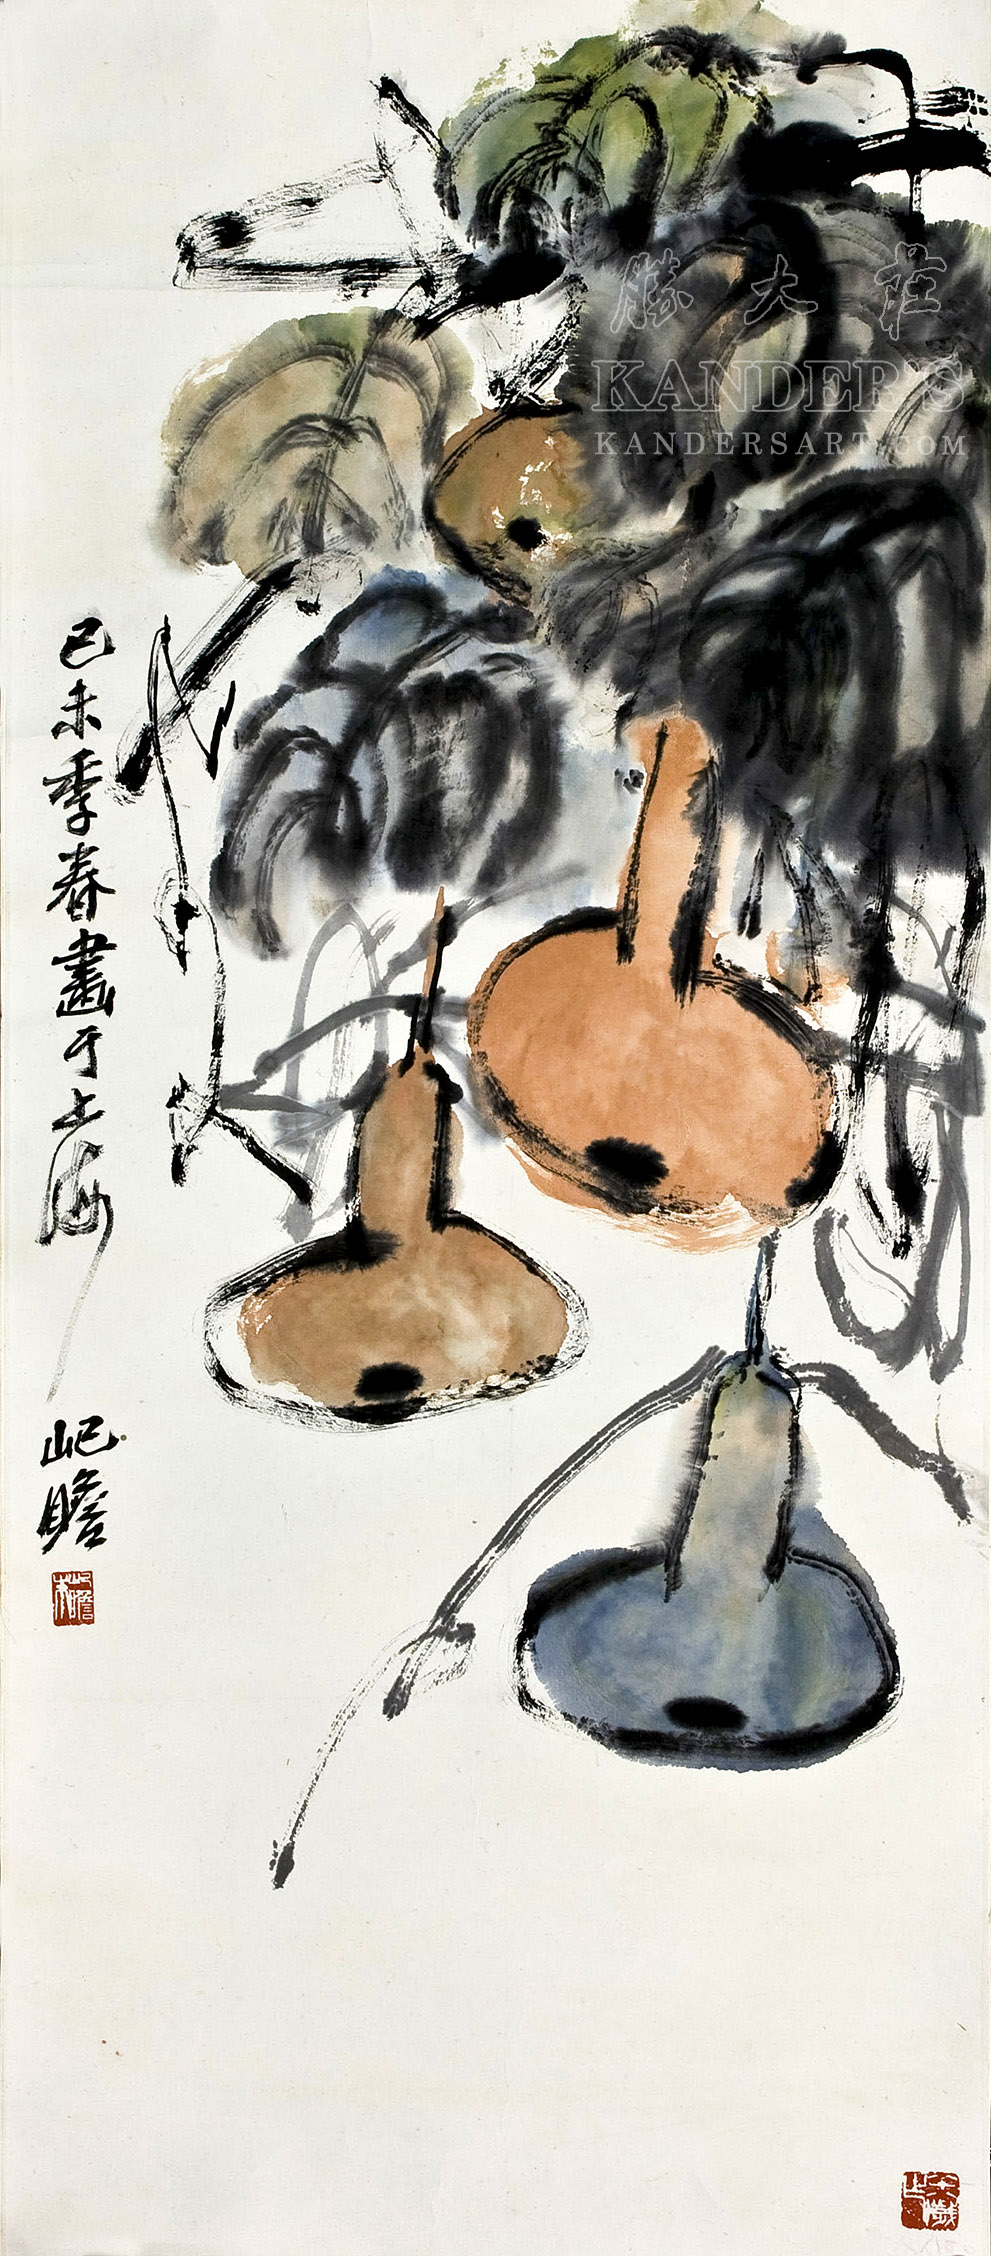 己未季春畫于上海
屺瞻
勝大莊
KANDER'S
KANDERSART.COM